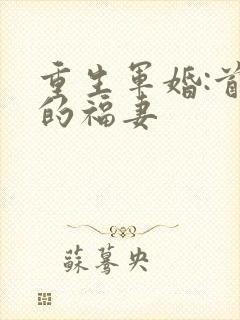 重生軍婚:首
的福妻
蘇驀央